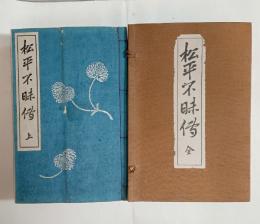 松平不昧傳 上
松平不昧傳 全